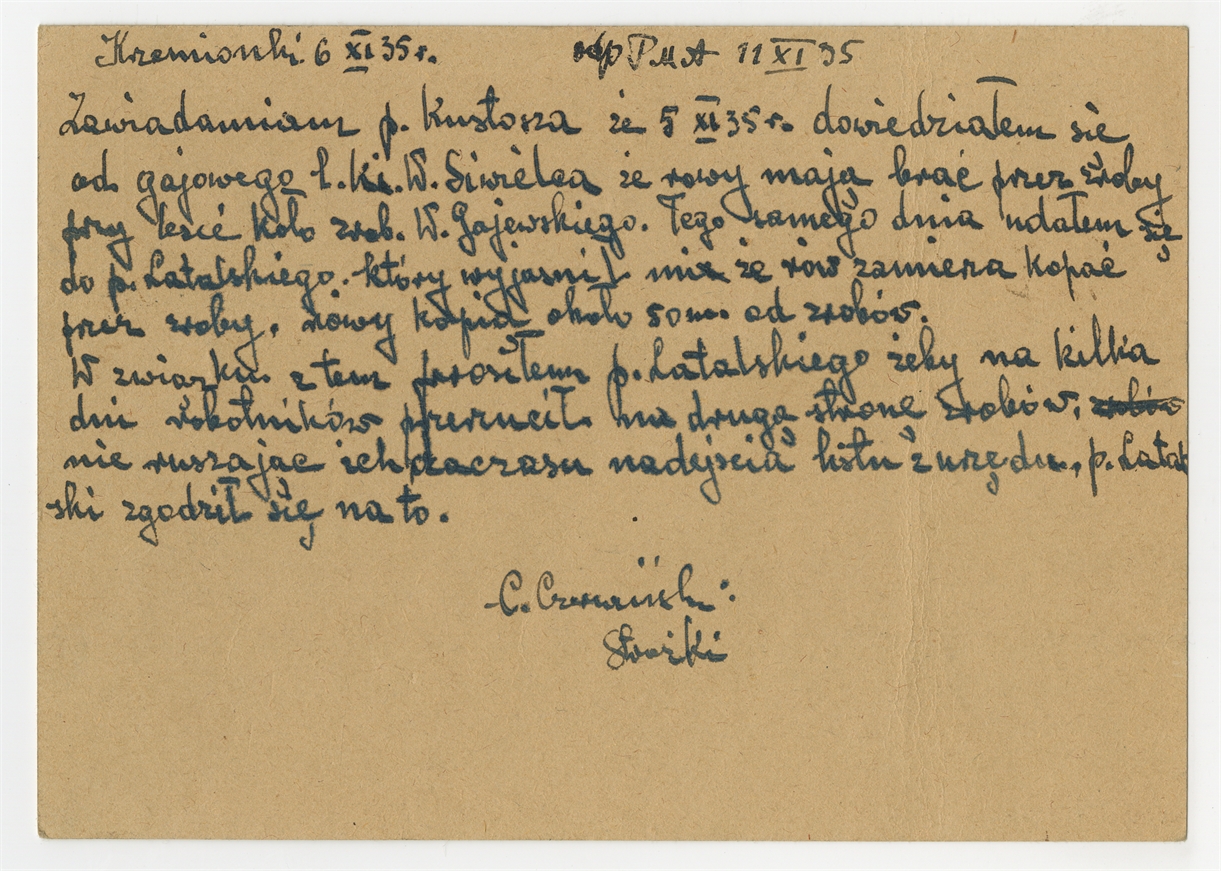 Krzemionki. 6 XI 35 r. odp PMA 11 XI 35
Zawiadamiam p. Kustosza że 5 XI 35 r. dowiedziałem sie
od gajowego l. Ki. W. Siwielca że rowy maja brać przez zroby
przy lesie koło zrob. W. Gajewskiego. Tego samego dnia udałem się
do p. Latalskiego. który wyjasnił mie że rów zamiera kopać
przez zroby, rowy kopią około 50 m. od zrobów.
W zwiazku z tem prosiłem p. Latalskiego żeby na kilka
dni robotników przerzucił na druga strone zrobów,
nie ruszajac ich do czasu nadejscia listu z urzędu, p. Latal
ski zgodził się na to.
C. Czerwiński